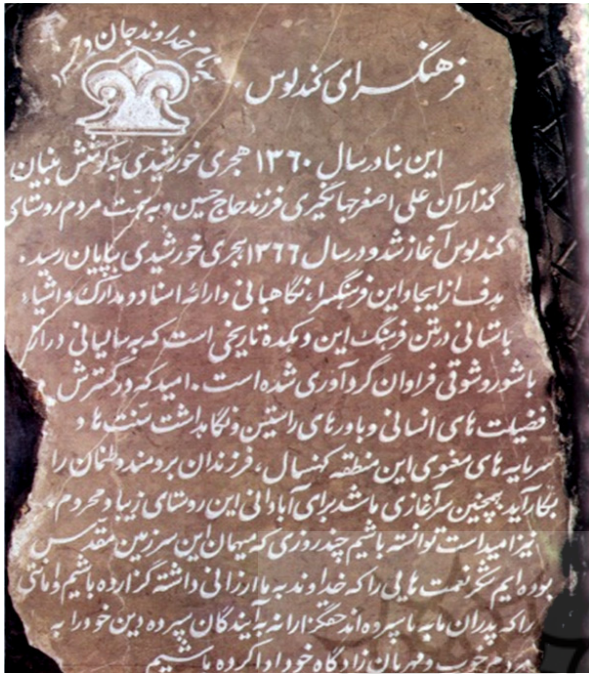 بنام خداوند جان و خرد
فرهنگسرای کندلوس
این بنا در سال ۱۳۶۰ هجری خورشیدی به کوشش بنیان
گذار آن علی اصغر جهانگیری فرزند حاج حسین و به همت مردم روستای
کندلوس آغاز شد و در سال ۱۳۶۶ هجری خورشیدی بپایان رسید.
هدف از ایجاد این فرهنگسرا، نگاهبانی و ارائه اسناد و مدارک و اشیاء
باستانی در متن فرهنگ این دهکده تاریخی است که به سالیانی دراز
با شور و شوقی فراوان گردآوری شده است. امید که در گسترش
فضیلت های انسانی و باورهای راستین و نگاهداشت سنت ها و
سرمایه های معنوی این منطقه کهنسال، فرزندان برومند وطنمان را
بکار آید همچنین سرآغازی باشد برای آبادانی این روستای زیبا و محروم.
نیز امید است توانسته باشیم چند روزی که میهمان این سرزمین مقدس
بوده ایم شکر نعمت هایی را که خداوند به ما ارزانی داشته گزارده باشیم و امانتی
را که پدران ما به ما سپرده اند حقگزارانه به آیندگان سپرده دین خود را به
مردم خوب و مهربان زادگاه خود ادا کرده باشیم